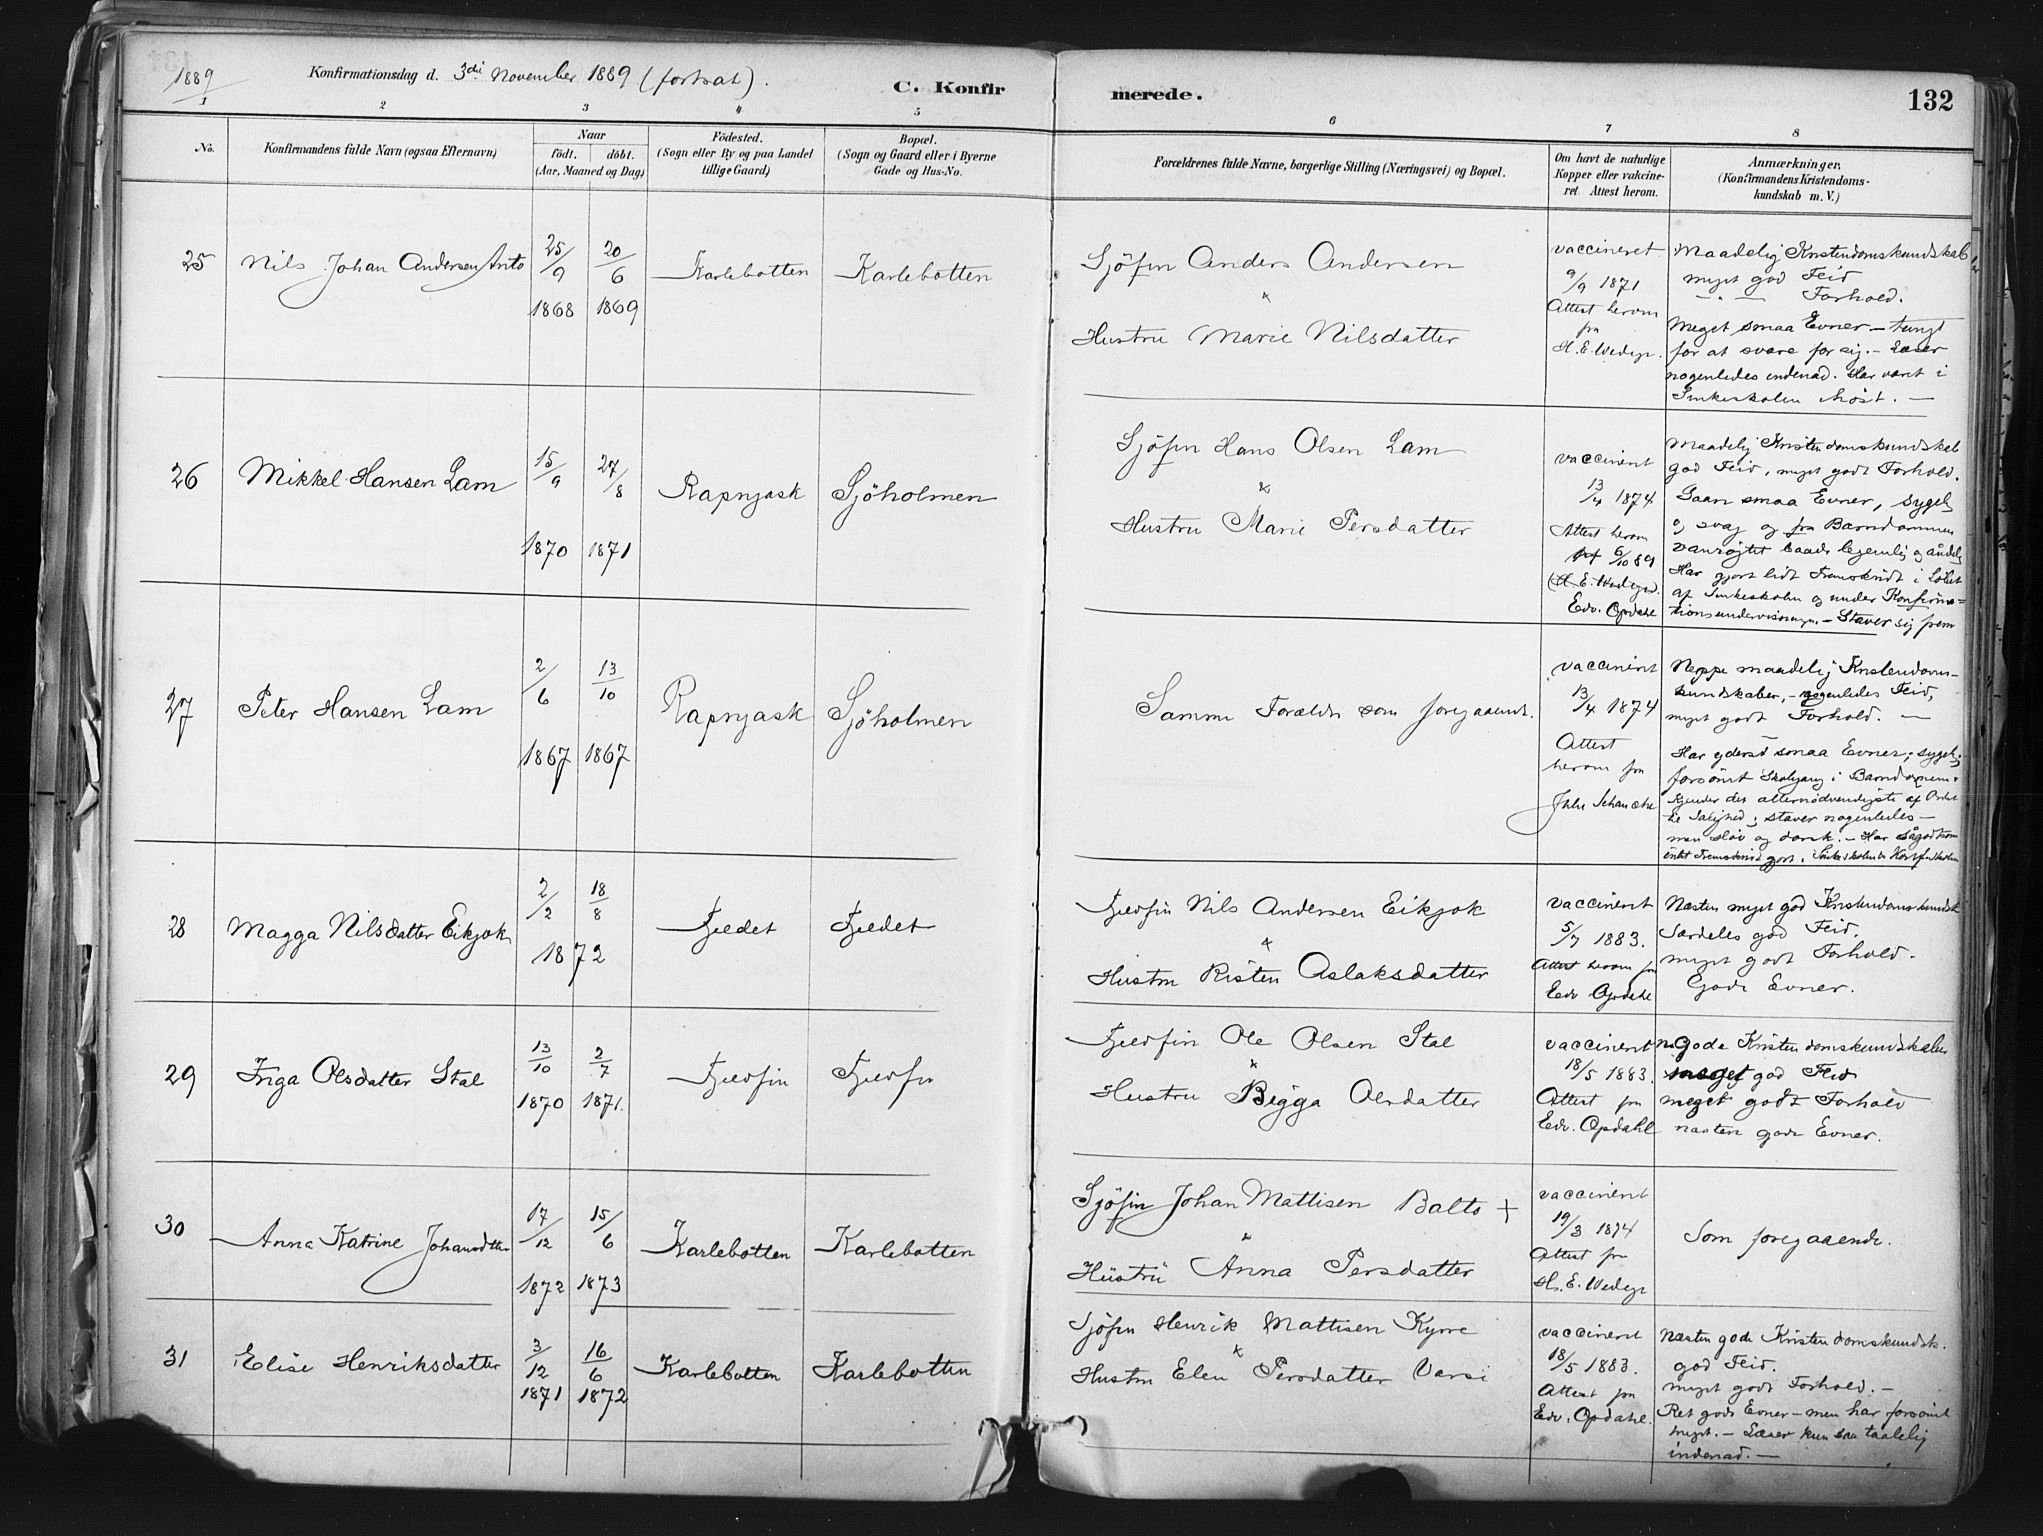 1889
Konfirmationsdag d. 3die November 1889 (fortsat).
C. Konfirmerede.
132
1 2 3 4 5 6 7 8
No.
Konfirmandens fulde Navn (ogsaa Efternavn)
Naar
födt. döbt.
(Aar, Maaned og Dag)
Födested.
(Sogn eller By og paa Landet
tillige Gaard)
Bopæl.
(Sogn og Gaard eller i Byerne
Gade og Hus-No.
Forældrenes fulde Navne, borgerlige Stilling (Næringsvei) og Bopæl.
Om havt de naturlige
Kopper eller vakcine-
ret. Attest herom.
Anmærkninger.
(Konfirmandens Kristendoms-
kundskab m. V.)
25 Nils Johan Andersen Anto
25/9 1868
20/6 1869
Karlebotten
Karlebotten
Sjöfin Anders Andersen
&
Hustru Marie Nilsdatter
vaccineret
9/9 1871
Attest herom
fra
H. E. Wedege.
Maadelig Kristendomskundskab
meget god Flid
— " — Forhold.
Meget smaa Evner – tungt
for at svare for sig. – Læser
nogenledes indenad. Har været i
Sinkeskolen i höst. —
26 Mikkel Hansen Lam
15/9 1870
27/8 1871
Rapnjask
Sjöholmen
Sjöfin Hans Olsen Lam
&
Hustru Marie Persdatter
vaccineret
13/4 1874
Attest herom
6/10 89
(H. E. Wedege).
Edv. Opdahl
Maadelig Kristendomskundskab
god Flid, meget godt Forhold.
Saare smaa Evner, sygel.
og svag og fra Barndommen
vanrögtet baade legemlig og åndelig
Har gjort lidt Fremskridt i Löbet
af Sinkeskolen og under Konfirma-
tionsundervisningen. – Staver sig frem
27 Peter Hansen Lam
2/6 1867
13/10 1867
Rapnjask
Sjöholmen
Samme Forældre som foregaaende.
vaccineret
13/4 1874
Attest
herom fra
Schanche
Neppe maadelig Kristendoms-
kundskaber, – nogenledes Flid,
meget godt Forhold. —
Har yderst smaa Evner; sygel.;
forsömt Skolegang i Barndommen.
Kjender det allernödvendigste af Ordet
til Salighed; staver nogenledes –
men slöv og dorsk. – Har
28 Magga Nilsdatter Eikjok
2/2 18/8
1872
Fjeldet
Fjeldet
Fjeldfin Nils Andersen Eikjok
&
Hustru Risten Aslaksdatter
vaccineret
5/7 1883.
Attest herom fra
Edv Opdahl
Næsten meget god Kristendomskundsk.
Særdeles god Flid.
meget godt Forhold.
Gode Evner.
29 Inga Olsdatter Stal
13/10 1870
2/7 1871.
Fjeldfin
Fjeldfin
Fjeldfin Ole Olsen Stal
&
Hustru Bigga Olsdatter
vaccineret
18/5 1883.
Attest fra
Edv. Opdahl
Gode Kristendomskundskaber
meget god Flid
meget godt Forhold
næsten gode Evner.
30 Anna Katrine Johansdtter
17/12 1872
15/6 1873
Karlebotten
Karlebotten
Sjöfin Johan Mattisen Balto +
&
Hustru Anna Persdatter
vaccineret
19/3 1874
Attest fra
H. E. Wedege
Som foregaaende.
31 Elise Henriksdatter
3/12 1871
16/6 1872
Karlebotten
Karlebotten
Sjöfin Henrik Mattisen Kyrre
&
Hustru Elen Persdatter Varsi
vaccineret
18/5 1883.
Attest fra
Edv. Opdahl.
Næsten gode Kristendomskundsk.
god Flid.
meget godt Forhold. –
Ret gode Evner – men har forsömt
meget. – Læser kun saa taalelig
indenad. —